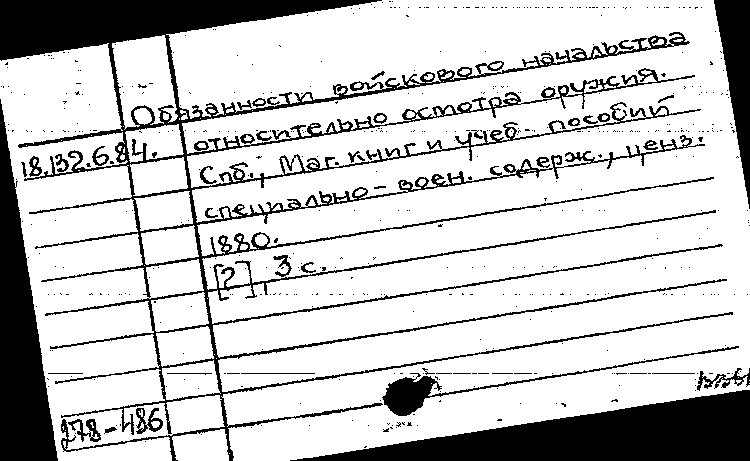 Обязанности войскового начальства
18.132.6.84.
относительно осмотра оружия.
Спб., Маг. книг и учеб. пособий
специально-воен. содерж., ценз.
1880.
[2], 3 с.
278-486